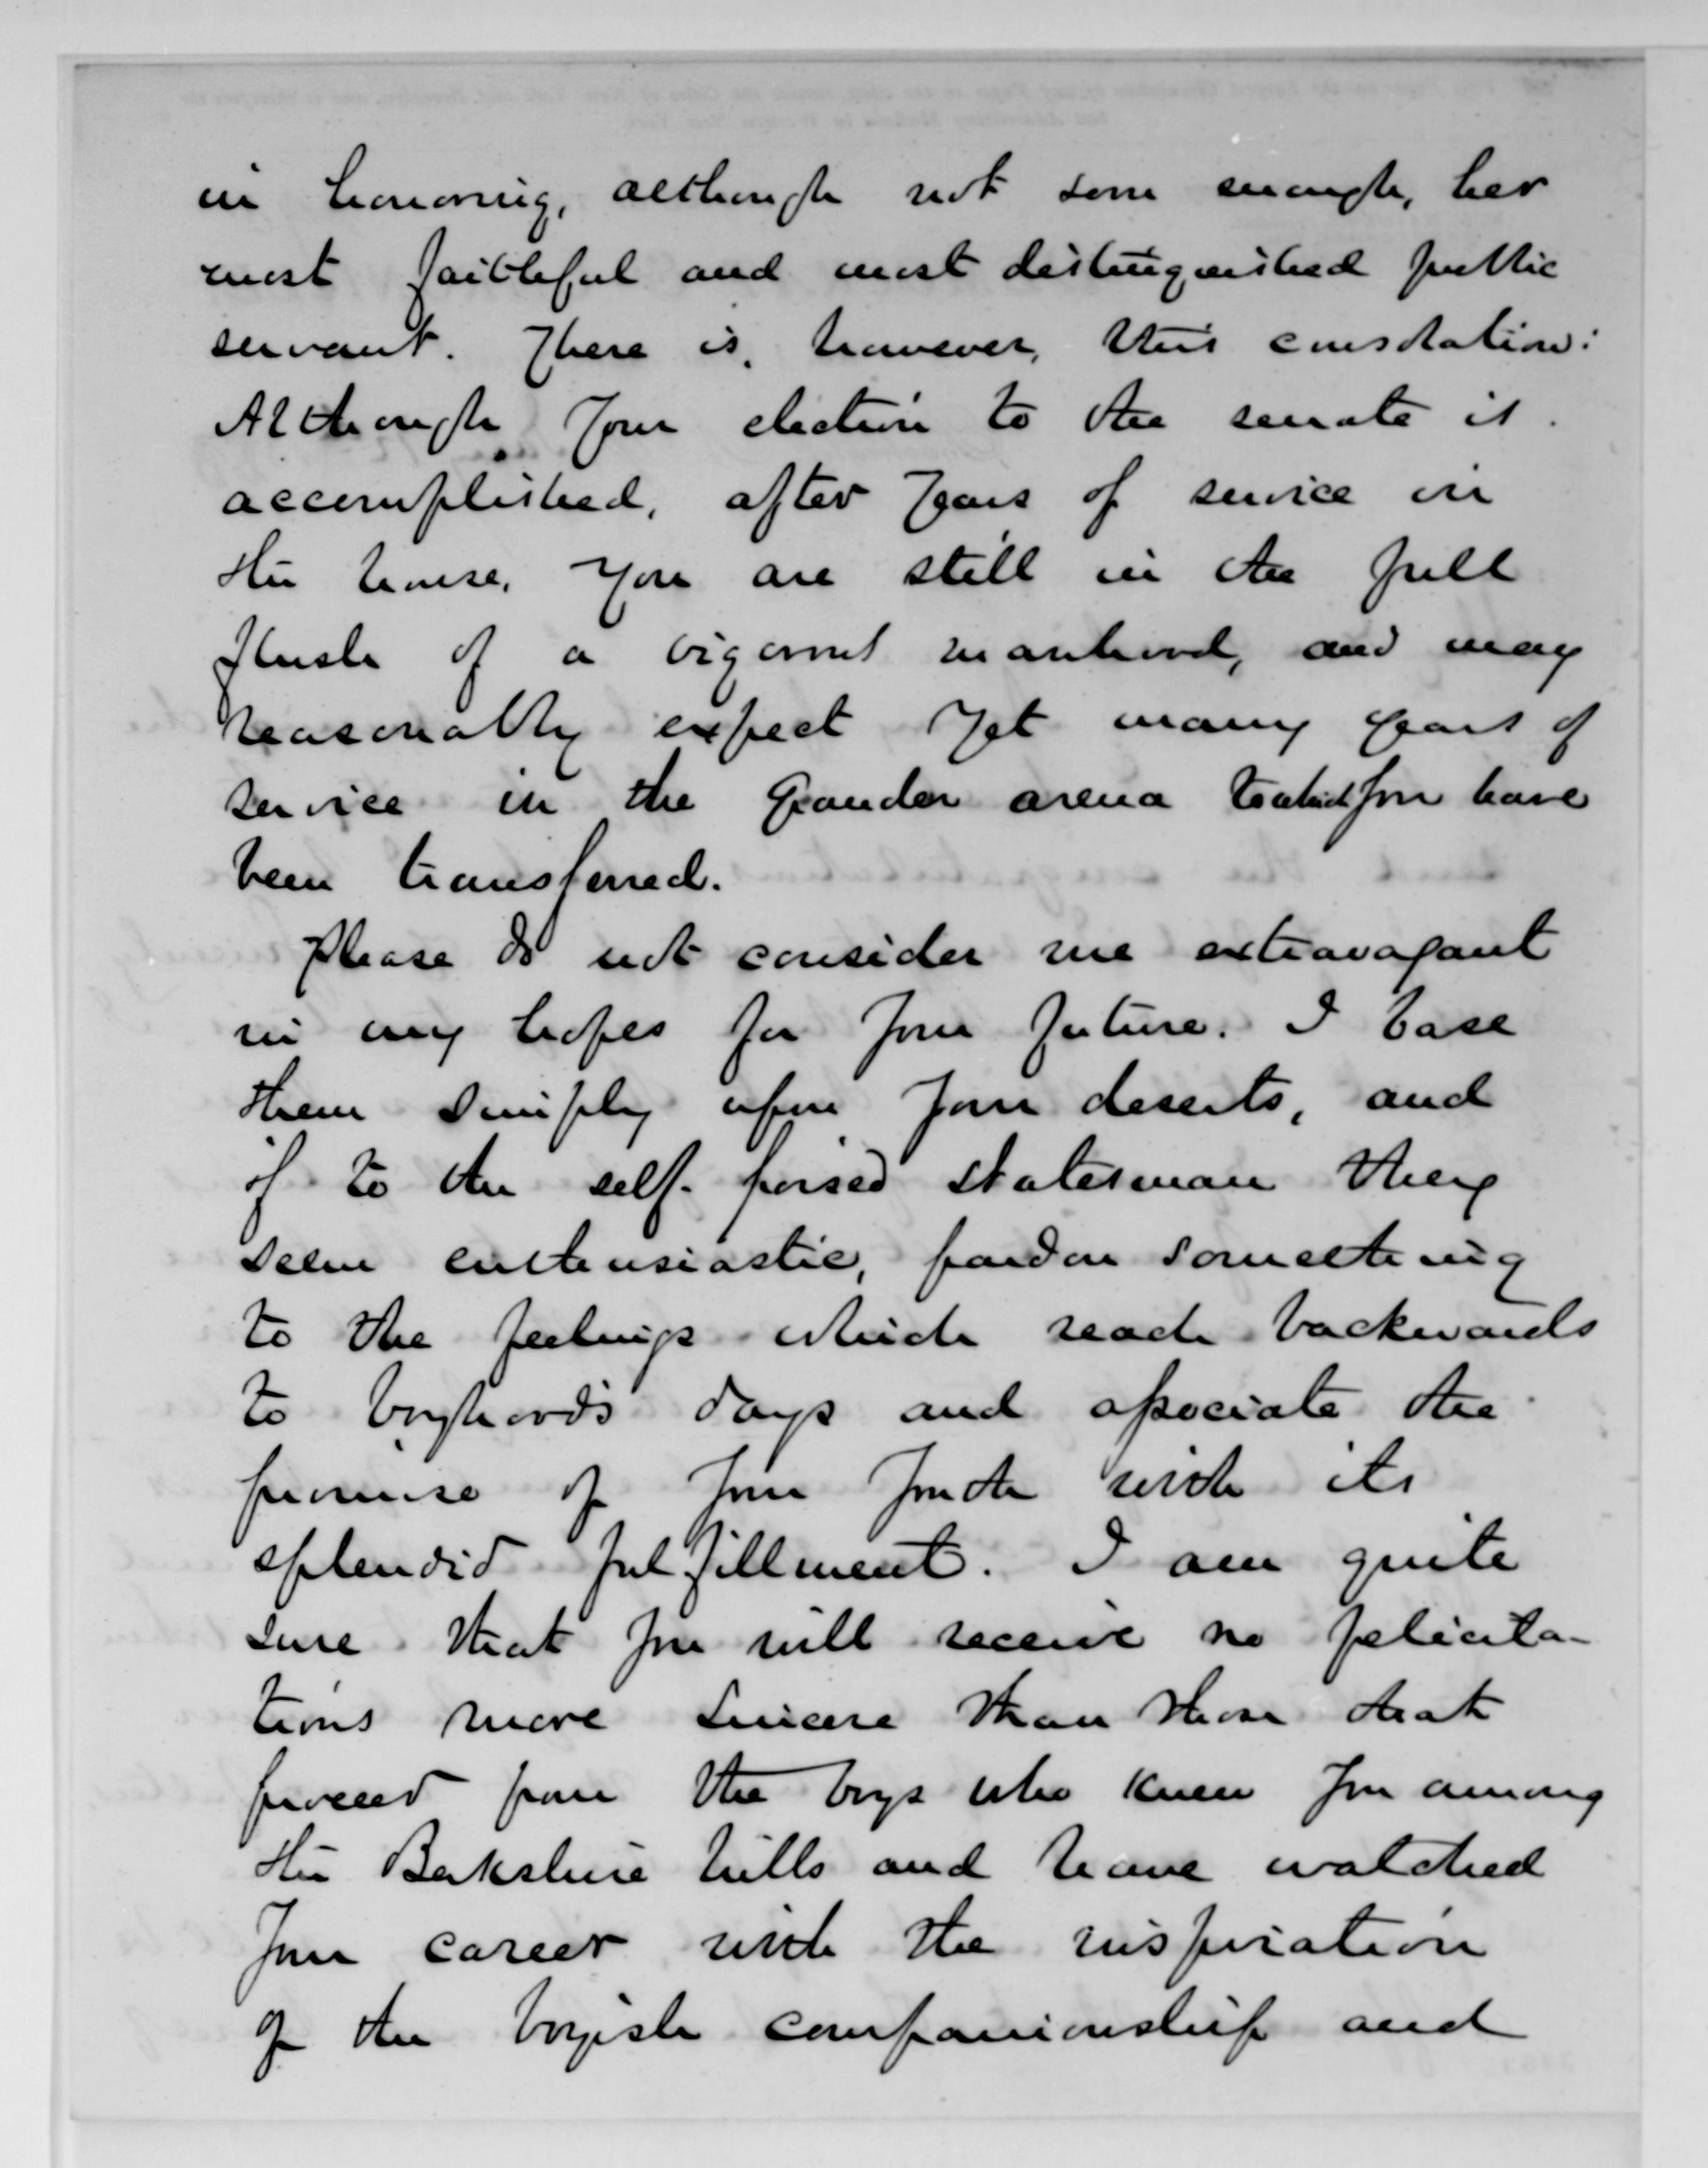 in honoring, although not soon enough, her
most faithful and most distinguished public
servant. There is, however, this consolation:
Although your election to the senate is
accomplished, after years of service in
the house, you are still in the full
flush of a vigorous manhood, and may
reasonably expect yet many years of
service in the grander arena to which you have
been transferred.
Please do not consider me extravagant
in my hopes for your future. I base
them simply upon your deserts, and
if to the self-poised statesman they
seem enthusiastic, pardon something
to the feelings which reach backwards
to boyhood's days and associate the
promise of your youth with its
splendid fulfillment. I am quite
sure that you will receive no felicita-
tions more sincere than those that
proceed from the boys who knew you among
the Berkshire hills and have watched
your career with the inspiration
of the boyish companionship and